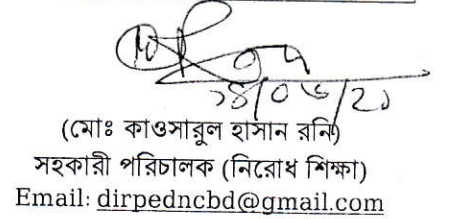 ১৪/০৬/২১
(মোঃ কাওসারুল হাসান রনি)
সহকারী পরিচালক (নিরোধ শিক্ষা)
Email: dirpedncbd@gmail.com